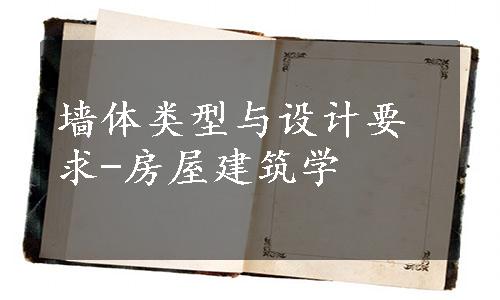 墙体类型与设计要
求-房屋建筑学